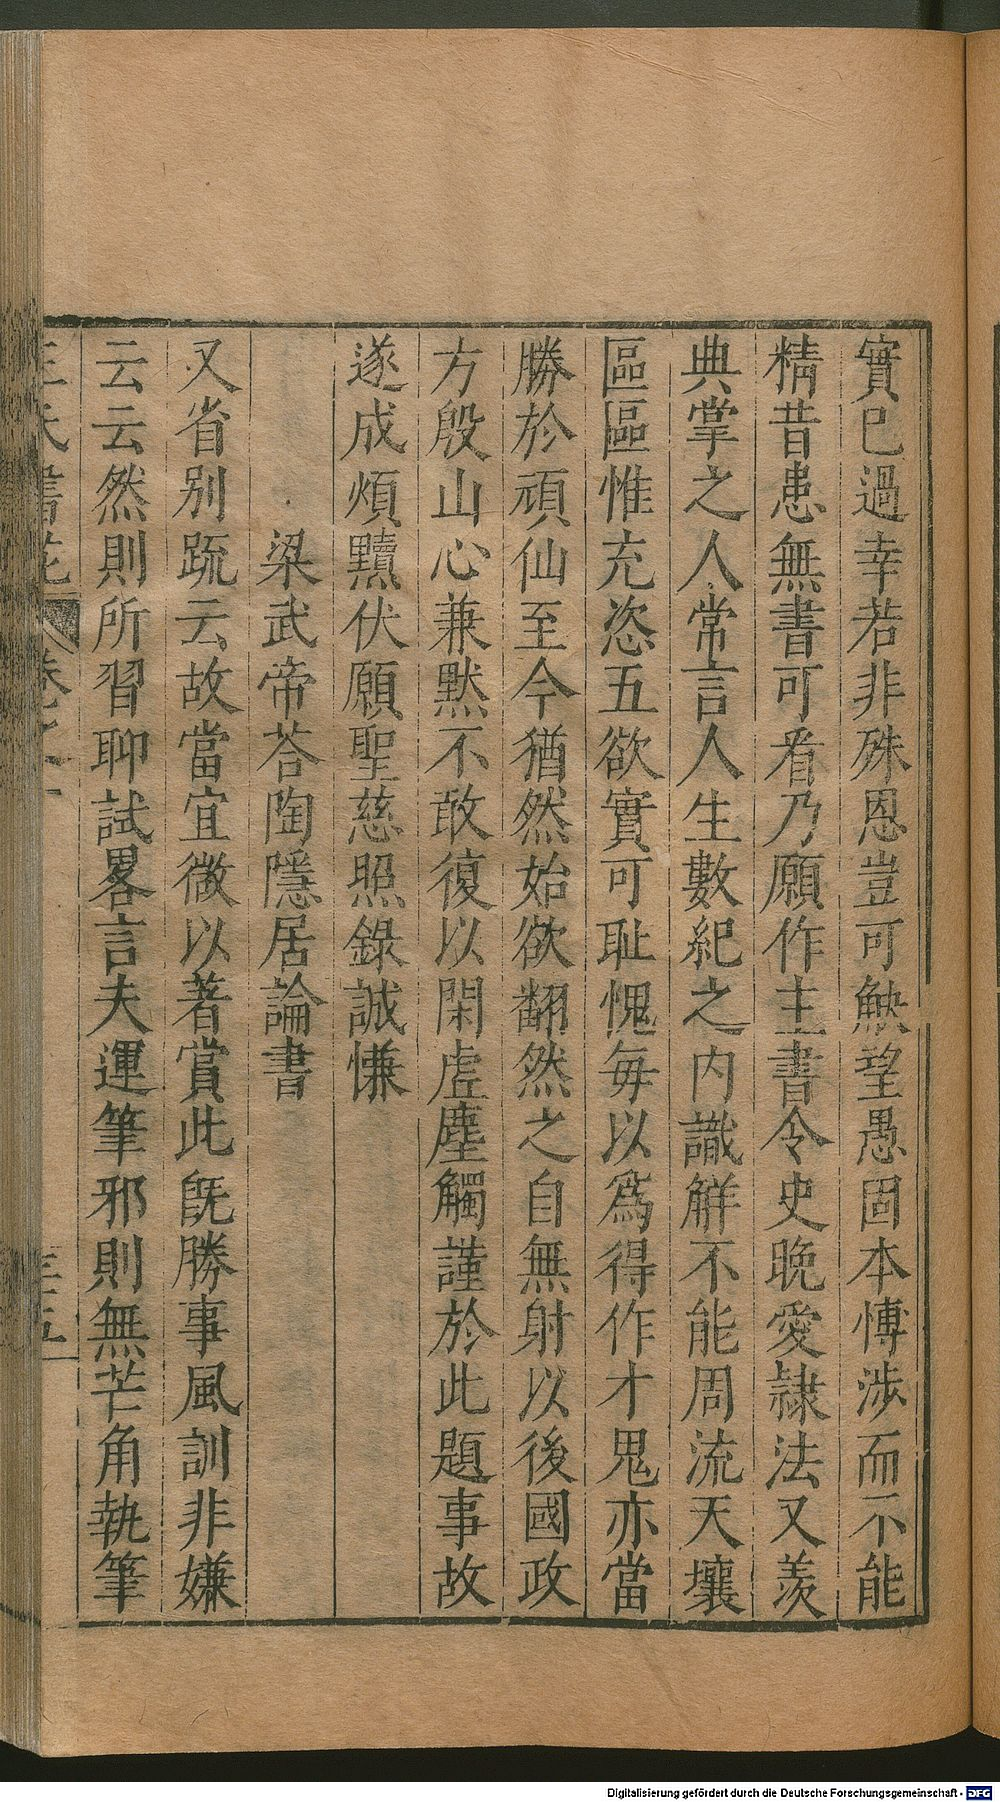 實已過幸若非殊恩豈可觖望愚固本愽涉而不能
精昔患無書可看乃願作主書令史晚愛隷法又羨
典掌之人常言人生數紀之内識觧不能周流天壤
區區惟充恣五欲實可耻愧每以爲得作才鬼亦當
勝於頑仙至今猶然始欲翻然之自無射以後國政
方殷山心兼黙不敢復以閑虚塵觸謹於此題事故
遂成煩黷伏願聖慈照錄誠慊
梁武帝荅陶隱居論書
又省别疏云故當宜微以著賞此旣勝事風訓非嫌
云云然則所習聊試畧言夫運筆邪則無芒角執筆
王氏書苑
卷之
三五
Digitalisierung gefördert durch die Deutsche Forschungsgemeinschaft - DFG